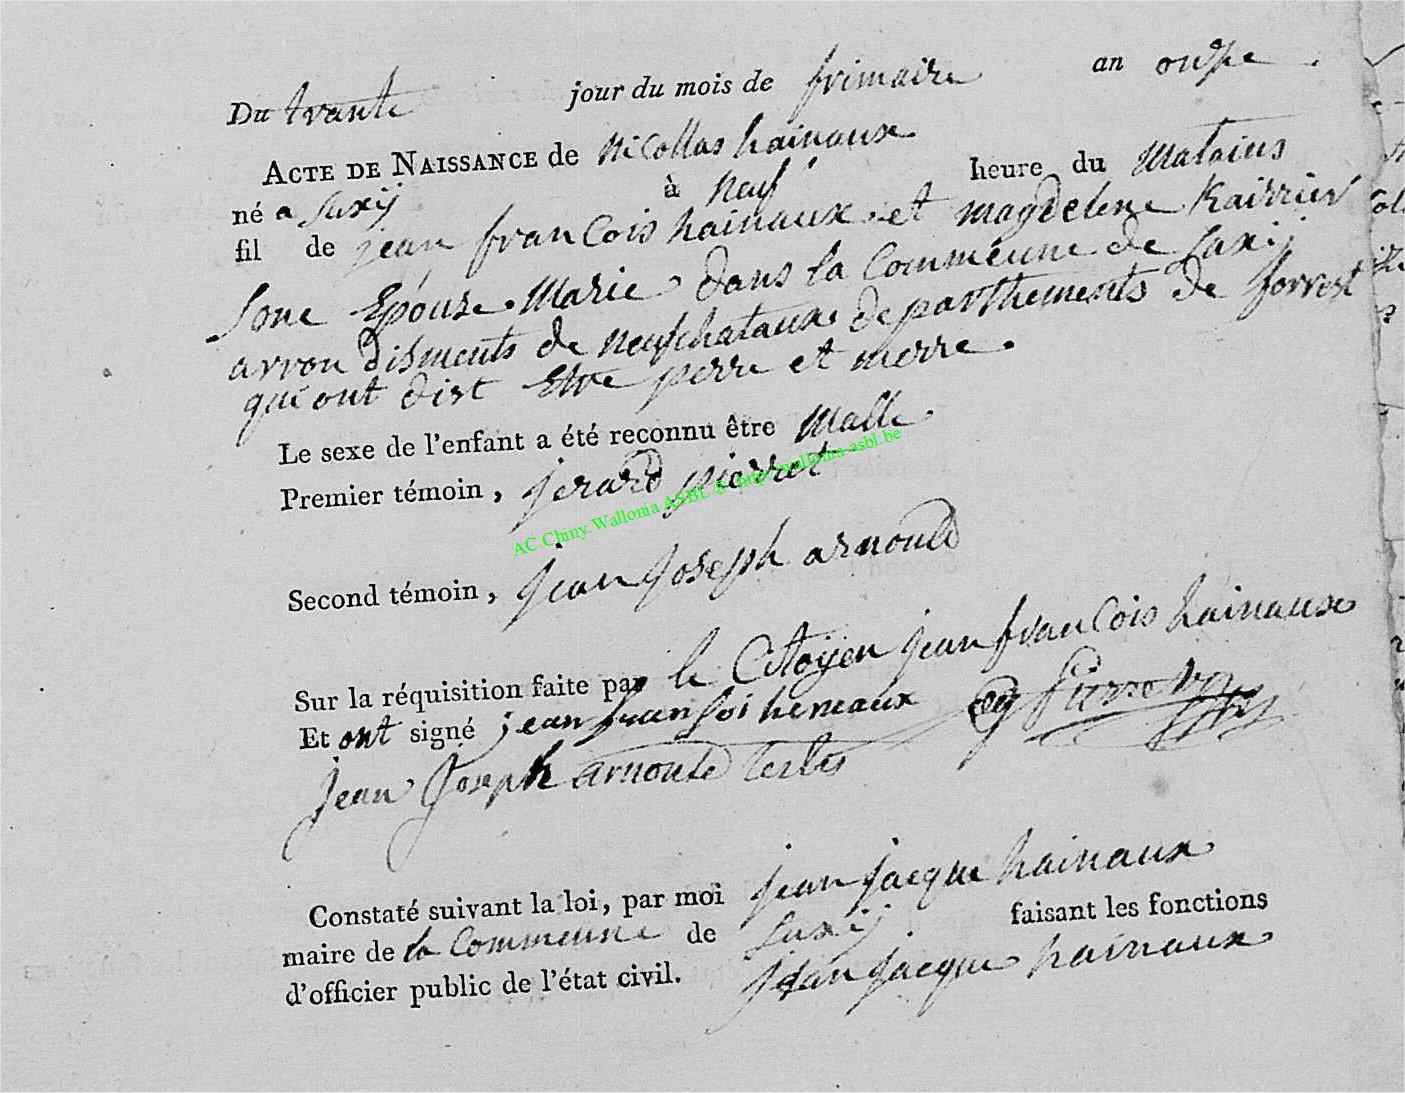 Du trante jour du mois de frimaire an onze .
ACTE DE NAISSANCE de nicollas hainaux
né a suxij à neuf heure du mataius
fil de jean francois hainaux et magdelene Kairrier
sone Epouse Marie dans la Comméune de Suxij
arrondisments de neufchataux departhements de forrest
qui ont dist Etre perre et merre .
Le sexe de l'enfant a été reconnu être malle .
Premier témoin , jerard pierret
AC Chiny-Wallonia ASBL wallonia-asbl.be
Second témoin , jean joseph arnould
Sur la réquisition faite par le Citoyen jean francois hainaux
Et ont signé jean fransoi heneaux
jean Joseph arnould
Constaté suivant la loi, par moi jean jacque hainaux
maire de la Commeune de Suxij . faisant les fonctions
d'officier public de l'état civil. jean jacque hainaux